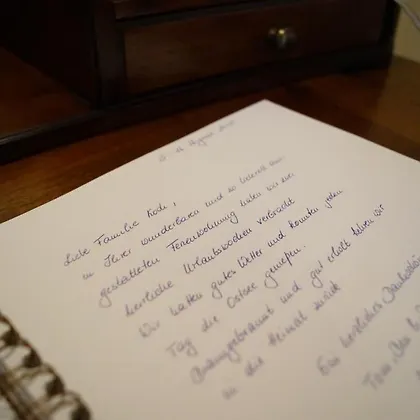 Liebe Familie Koch,
in Ihrer wunderbaren und so liebevoll
gestalteten Ferienwohnung haben wir zwei
herrliche Urlaubswochen verbracht.
Wir hatten gutes Wetter und konnten jeden
Tag die Ostsee genießen.
und gut erholt fahren wir
in die Heimat zurück
Ein herzliches Dankeschön